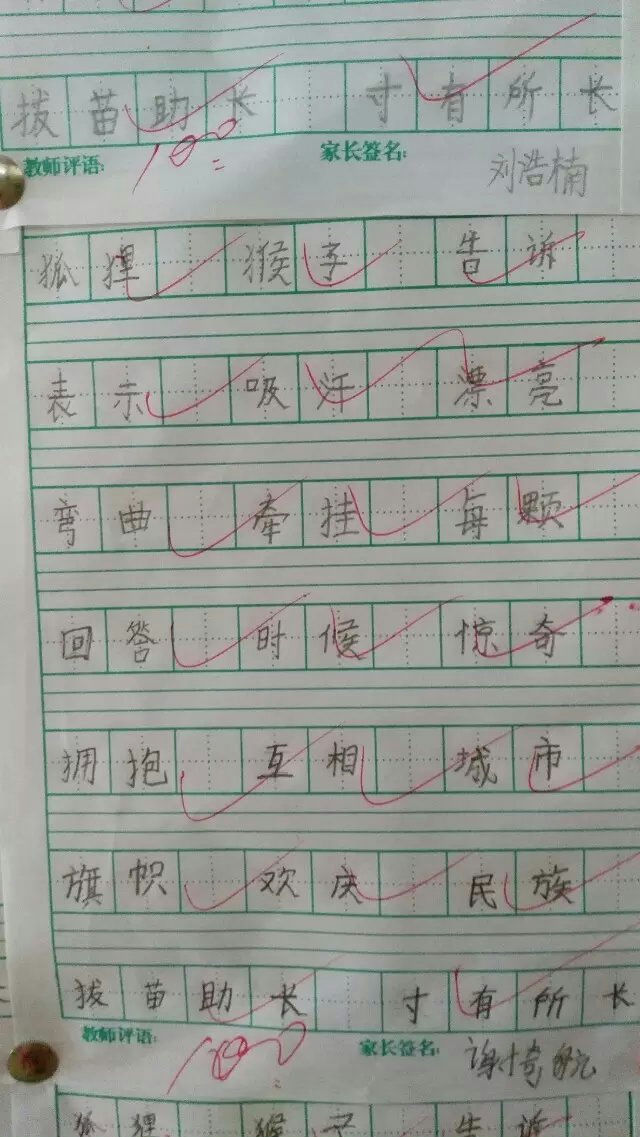 拔苗助长 寸有所长
教师评语: 100 家长签名: 刘浩楠
狐狸 猴子 告诉
表示 吸汗 漂亮
弯曲 牵挂 每颗
回答 时候 惊奇
拥抱 互相 城市
旗帜 欢庆 民族
拔苗助长 寸有所长
教师评语: 100 家长签名: 谢
狐狸 猴子 告诉